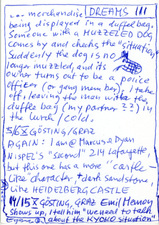 ... merchandise DREAMS III
being displayed in a duffel bag.
Someone with a MUZZELED DOG
comes by and checks the "situation"
Suddenly the dog is no
longer muzzled, and its
owner turns out to be a police
officer (or gang mem ber), I take
off leaving the man with the
duffle bag (my partner ??) in
the lurch / cold.
5/6 X GÖSTING/GRAZ
AGAIN: I am @ Marcus & Dyan
NISPEL's "Second" 214 Lafayette,
but this one has a more "castle"
like character + dark sandstone,
like HEIDELBERG CASTLE
14/15 X GÖSTING, GRAZ Emil Memoy
shows up, I tell him "we need to talk
about the KYOKO situation"